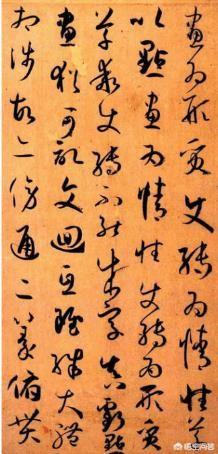 畫為形質使轉為情性草
以點畫為情性使轉為形質
草乖使轉不能成字真虧點
畫猶可記文迴互雖殊大體
相涉故亦傍通二篆俯貫
悟空问答